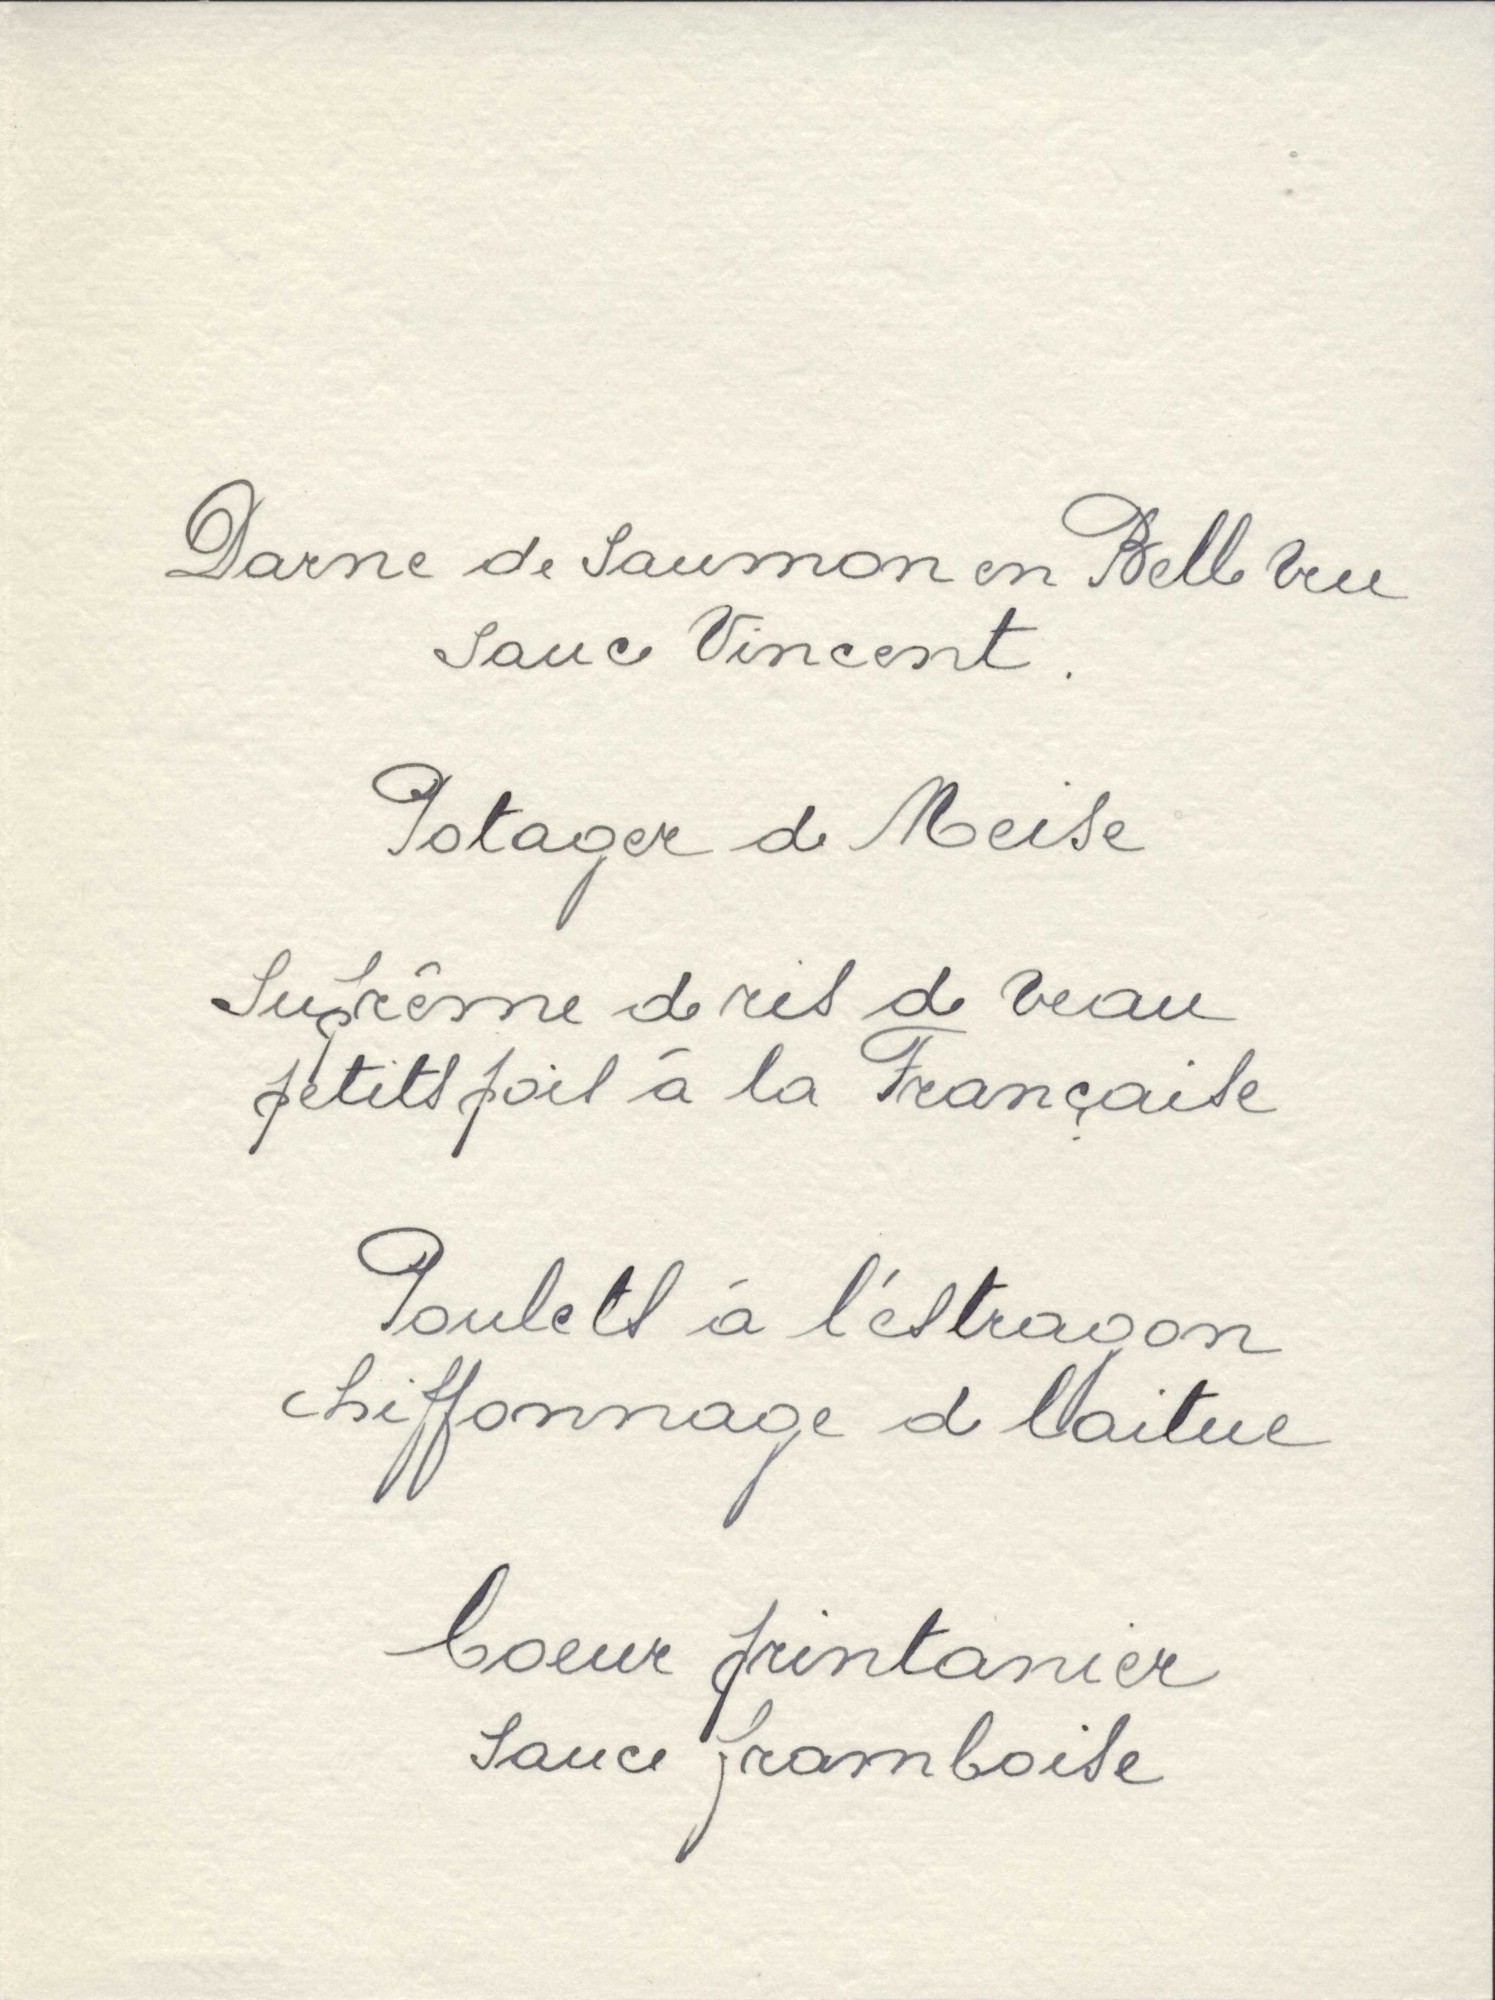 Darne de Saumon en Belle Vue
Sauce Vincent.
Potager de Meise
Suprême de ris de veau
petits pois à la Française
Poulets à l'éstragon
chiffonnage de laitue
Coeur printanier
Sauce framboise